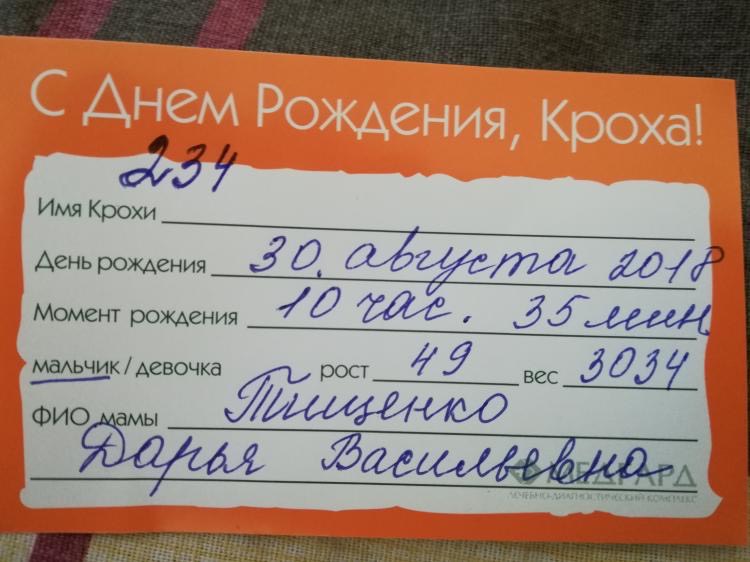 С Днем Рождения, Кроха!
234
Имя Крохи
День рождения 30. августа 2018
Момент рождения 10 час. 35 мин.
мальчик / девочка рост 49 вес 3034
ФИО мамы Тищенко
Дарья Васильевна
МЕДГАРД
ЛЕЧЕБНО-ДИАГНОСТИЧЕСКИЙ КОМПЛЕКС